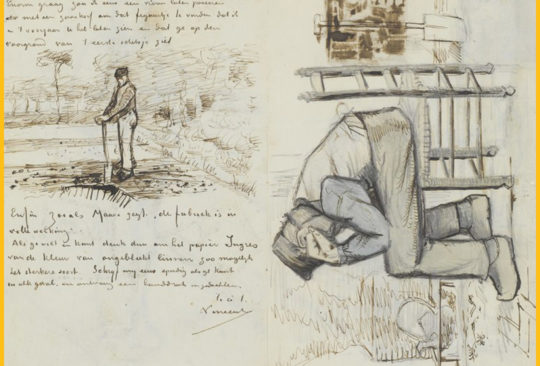 Enorm graag zou ik eens een vrouw laten poseeren
met een zaaikorf om dat figuurtje te vinden dat ik
u 't voorjaar heb laten zien en dat ge op den
voorgrond van 't eerste schetsje ziet
Enfin zooals Mauve zegt, „de fabriek is in
volle werking”.
Als ge wil en kunt denk dan om het papier Ingres
van de kleur van ongebleekt linnen zoo mogelijk
het sterkere soort. Schrijf mij eens spoedig als ge kunt
in alle geval, en ontvang een handdruk in gedachten.
t. à t.
Vincent